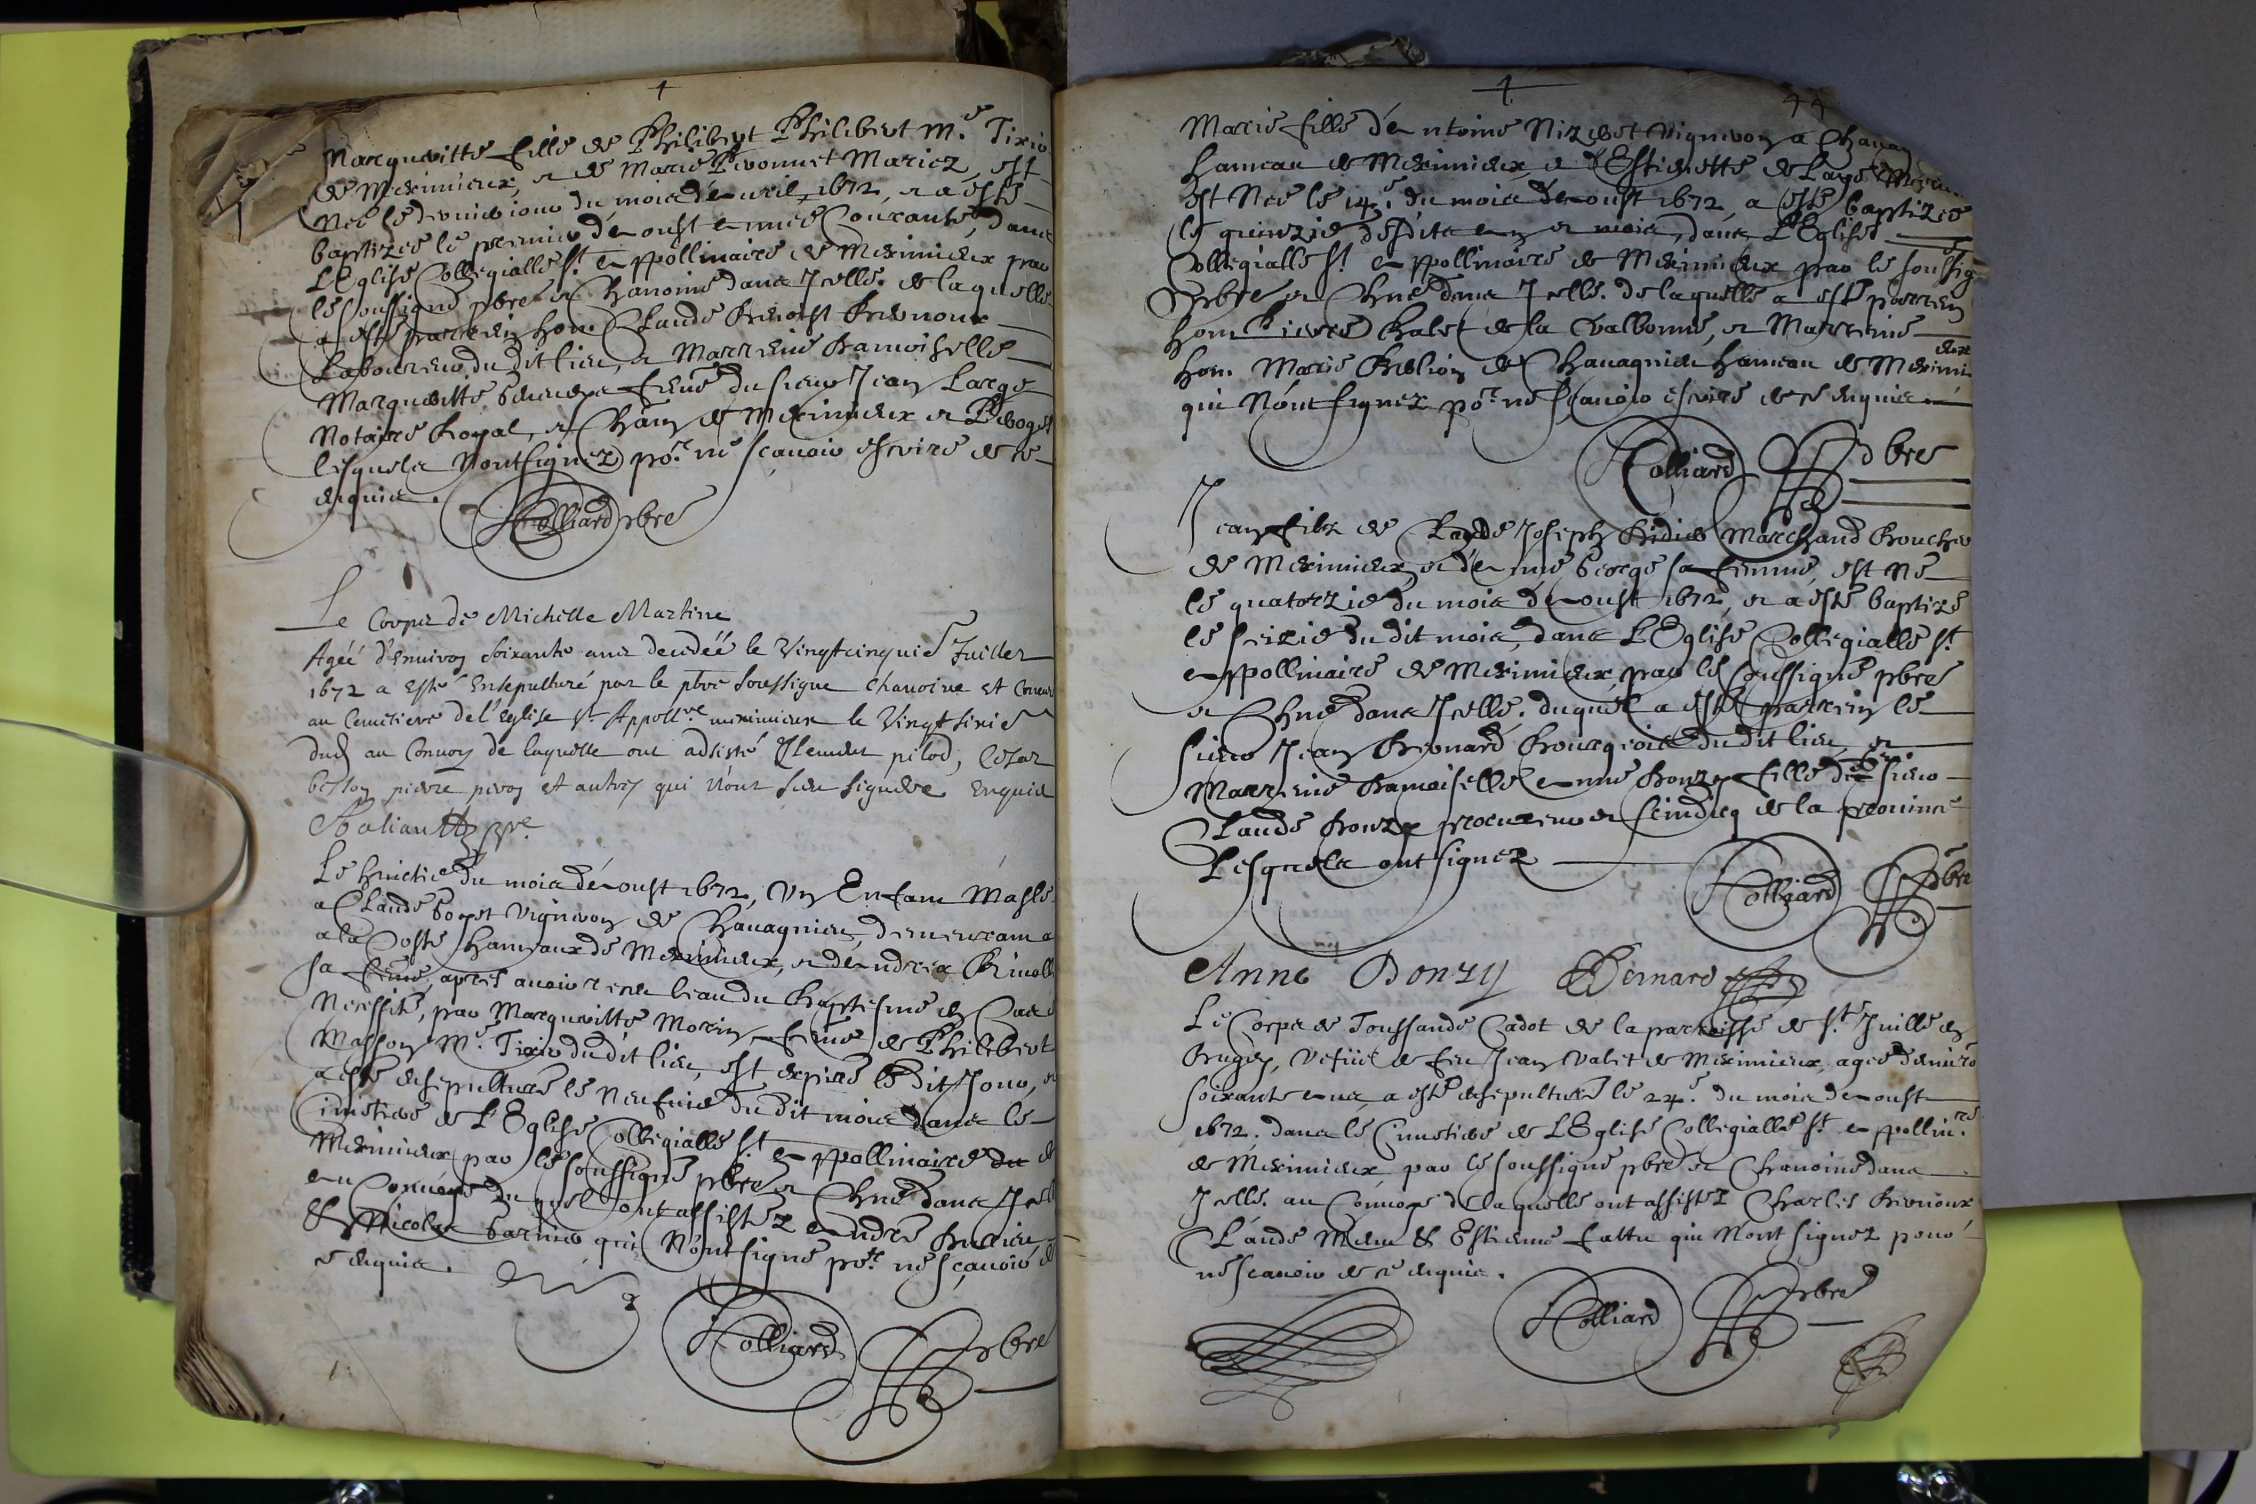 Margueritte fille de Philibert Philibert M.e Tixie
de Meximieux, et de Marie Pivonnet Mariez, est
Née le dernier jour du mois d'Avril 1672, et a esté
baptizée le premier d'Aoust Année Courante, dans
L'Eglise Collegialle St Appollinaire de Meximieux par
le soussigné pbre et Chanoine dans Icelle. de laquelle
a esté parrein hon. Claude Benoist
Laboureur du dit lieu, et Marreine Damoiselle
Marguerite femme du sieur Jean Large
Notaire Royal, et Chain de Meximieux et
lesquels Nont signez po.r ne sçavoir escrire de ce
enquis.
Colliard pbre
Le Corps de Michelle Martine
Agéé d'Environ Soixante ans decedéé le Vingtcinquie Juillet
1672 a Esté Ensepulturé par le pbre Soussigne Chanoine et
au Cemitiere de l'Eglise St Appoll.re meximieux le Vingt sixie
dud au Convoy de laquelle ont adsisté Clement pilod, Cesar
beston pierre piron et autres qui n'ont sceu signere Enquis
pbre
Le huictie du mois d'Aoust 1672, Un Enfant Masle
a Claude Vigneron de Chavagnieu, demeurant
a la Coste hameaux de Meximieux, et d'Andrea
sa feme, apres avoir receu leau du Baptesme en Cas d
Necessité, par Margueritte Morin feme de Philibert
Masson M.e Tixie du dit lieu, est expiré le dit Jour, et
a esté ensepulturé le Neufvie du dit mois dans le
Cimetiere de L'Eglise Collegialle St Appollinaire du de
Meximieux par le soussigné pbre et Chne dans Icell
Au Convoye duquel ont assistez Andre
& Nicolas Garnier qui N'ont signé po.r ne sçavoir de
ce enquis.
Colliard pbre
44
Marie fille d'Antoine Nizeret Vigneron a Chavag
hameau de Meximieux, et d'Estienette de Large
est Née le 14.e du mois d'Aoust 1672, a esté baptizée
le quinzie desdits an et mois, dans L'Eglise
Collegialle St Appollinaire de Meximieux par le soussig
Pbre et Chne dans Icelle. de laquelle a esté parrein
hon. Pierre de la Valbonne, et Marreine
hon. Marie de Chavagnieu hameau de Meximieux
qui N'ont signez po.r ne sçavoir escrire de ce enquis
Colliard pbre
Jean fils de Claude Joseph Didier Marchand Boucher
de Meximieux et d'Anne George sa femme, est Né
le quatorzie du mois d'Aoust 1672, et a esté baptizé
le seizie du dit mois, dans L'Eglise Collegialle St
Appollinaire de Meximieux, par le soussigné pbre
et Chne dans Icelle. duquel a esté parrein le
sieur Jean Bernard Bourgeois du dit lieu, et
Marreine Damoiselle Anne Donzy fille de sieur
Claude Donzy procureur et scindicq de la province
Lesquels ont signez
Colliard pbre
Anne Donzy Bernard
Le Corps de Toussande Cadot de la parroisse de St Juille en
Bugey, Vefüe de feu Jean Valet de Meximieux agee denviro
soixante ans, a esté ensepulturé le 24.e du mois d'Aoust
1672. dans le Cimetiere de L'Eglise Collegialle St Appollin.re
de Meximieux, par le soussigné pbre et Chanoine dans
Icelle. au Convoye de laquelle ont assistez Charles Bernoux
Claude & Estienne fattu qui Nont signez pour
ne scavoir de ce enquis.
Colliard pbre